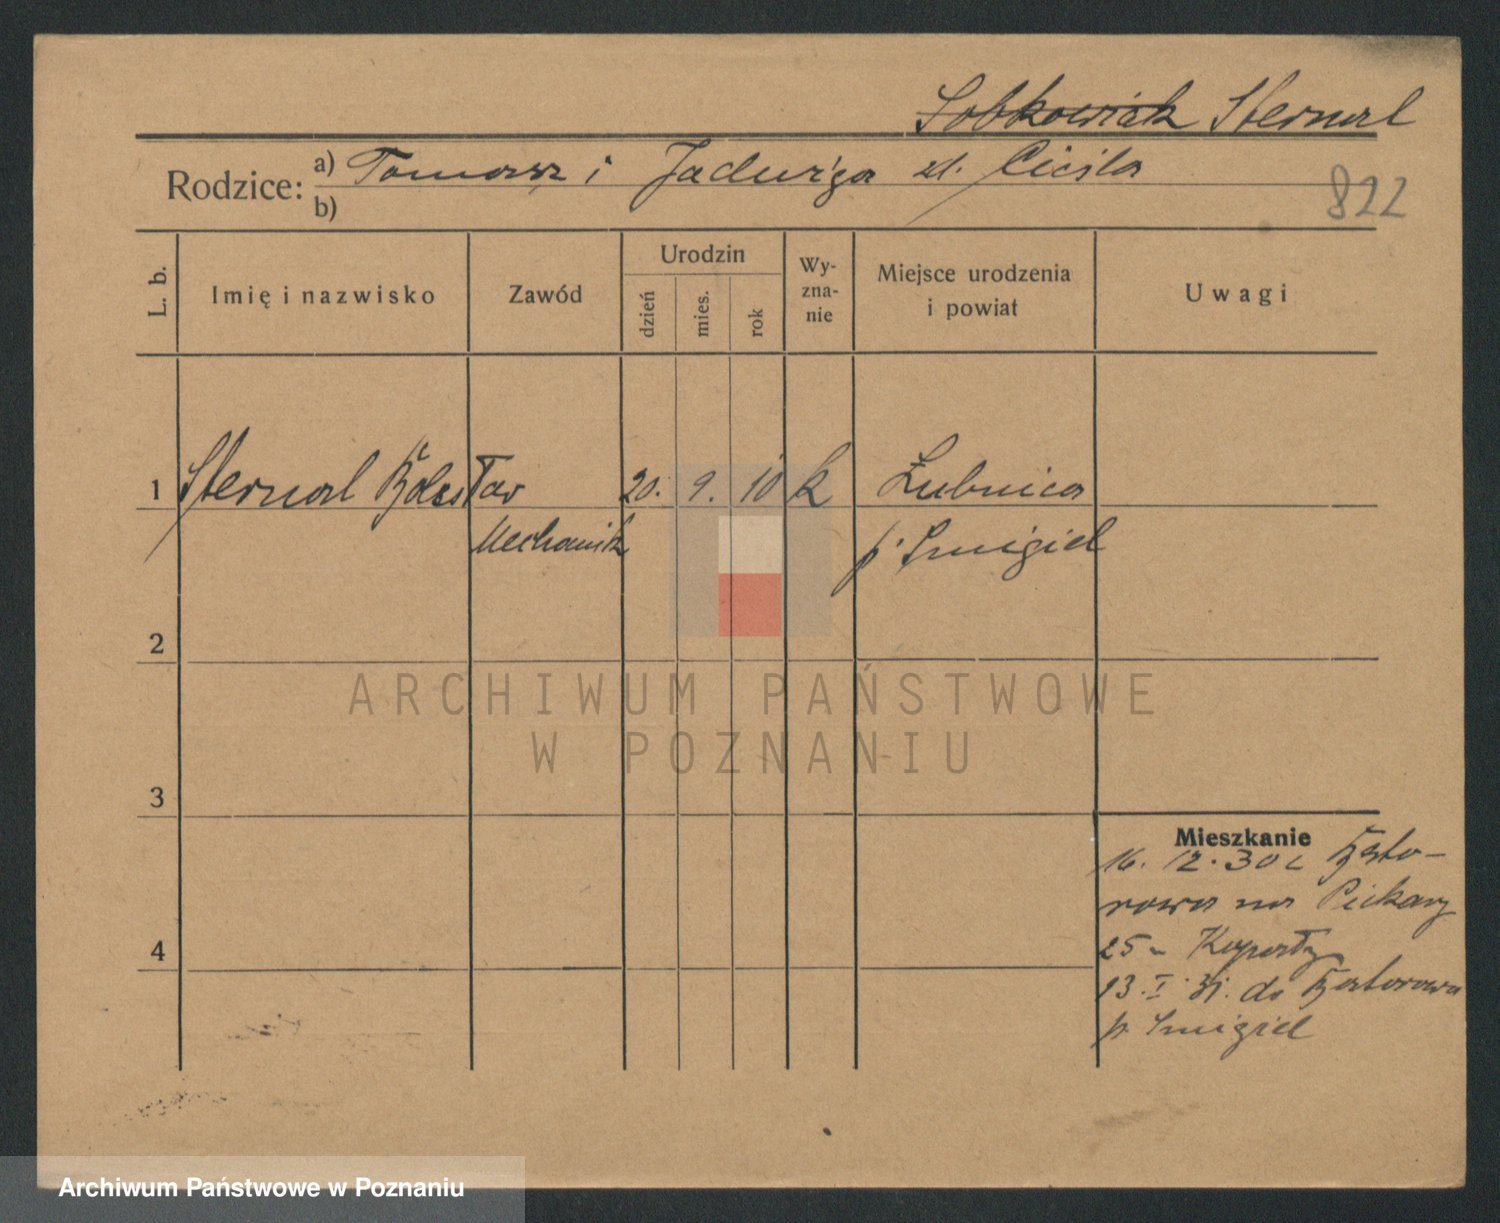 Sobkowiak Sternal
Rodzice: a) Tomasz i Jadwiga zd. Cieśla
b)
822
L. b. Imię i nazwisko Zawód Urodzin dzień mies. rok Wy-zna-nie Miejsce urodzenia i powiat Uwagi
1 Sternal Bolesław 20. 9. 10 k Żubnica
Mechanik p. Smigiel
2
ARCHIWUM PAŃSTWOWE
W POZNANIU
3
Mieszkanie
16. 12. 30 z
rowa na Piekary
4
25
13. I. 31. do
p. Smigiel
Archiwum Państwowe w Poznaniu